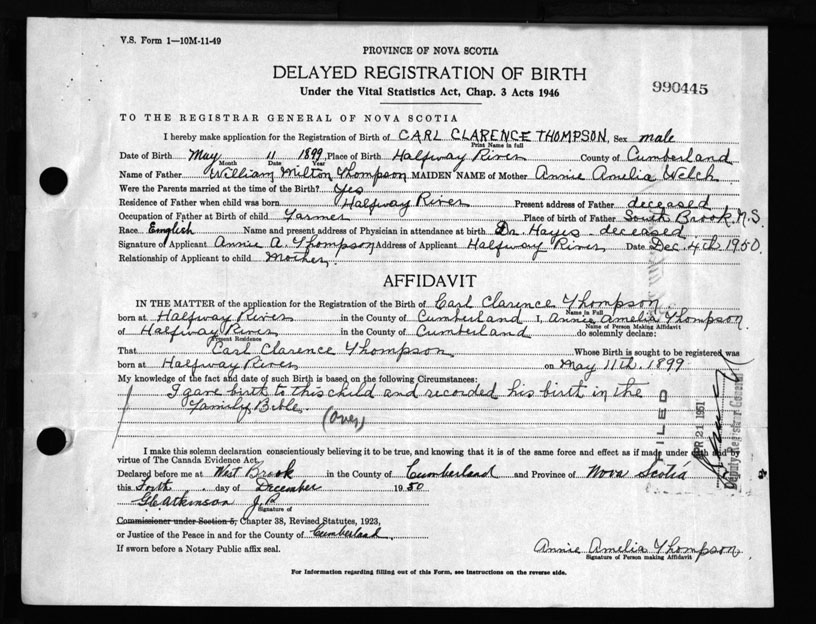 V.S. Form 1—10M-11-49
PROVINCE OF NOVA SCOTIA
DELAYED REGISTRATION OF BIRTH
990445
Under the Vital Statistics Act, Chap. 3 Acts 1946
TO THE REGISTRAR GENERAL OF NOVA SCOTIA
I hereby make application for the Registration of Birth of CARL CLARENCE THOMPSON, Sex male
Print Name in full
Date of Birth May 11 1899, Place of Birth Halfway River County of Cumberland
Month Date Year
Name of Father William Milton Thompson MAIDEN NAME of Mother Annie Amelia Welch
Were the Parents married at the time of the Birth? Yes
Residence of Father when child was born Halfway River Present address of Father deceased
Occupation of Father at Birth of child Farmer Place of birth of Father South Brook, N.S.
Race English Name and present address of Physician in attendance at birth Dr. Hayes - deceased
Signature of Applicant Annie A. Thompson Address of Applicant Halfway River Date Dec. 4th 1950.
Relationship of Applicant to child Mother.
AFFIDAVIT
IN THE MATTER of the application for the Registration of the Birth of Carl Clarence Thompson
Name in Full
born at Halfway River in the County of Cumberland I, Annie Amelia Thompson
Name of Person Making Affidavit
of Halfway River in the County of Cumberland do solemnly declare:
Present Residence
That Carl Clarence Thompson Whose Birth is sought to be registered was
born at Halfway River on May 11th 1899
My knowledge of the fact and date of such Birth is based on the following Circumstances:
I gave birth to this child and recorded his birth in the
Family Bible.
(over)
FILED
APR 21 1951
Deputy Registrar General
I make this solemn declaration conscientiously believing it to be true, and knowing that it is of the same force and effect as if made under oath and by
virtue of The Canada Evidence Act.
Declared before me at West Brook in the County of Cumberland and Province of Nova Scotia
this Forth day of December 1950
G.E. Atkinson J.P.
Signature of
Commissioner under Section 5, Chapter 38, Revised Statutes, 1923,
or Justice of the Peace in and for the County of Cumberland
If sworn before a Notary Public affix seal.
Annie Amelia Thompson.
Signature of Person making Affidavit
For Information regarding filling out of this Form, see Instructions on the reverse side.